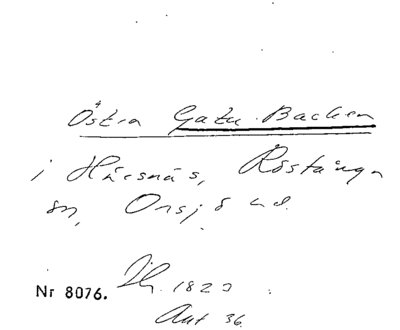 Östra Gatu-Backen
i Härsnäs, Röstånga
sn, Onsjö hd.
Nr 8076. 1820
Ant 36.